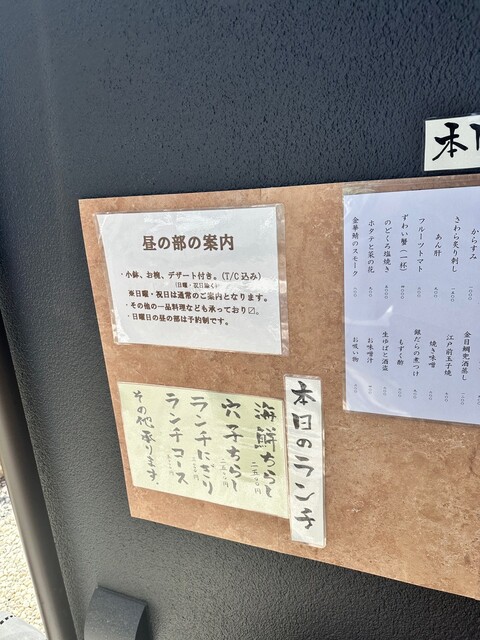 昼の部の案内
・小鉢、お椀、デザート付き。(T/C込み)
(日曜・祝日除く)
※日曜・祝日は通常のご案内となります。
・その他の一品料理なども承っており〼。
・日曜日の昼の部は予約制です。
本日のランチ
海鮮ちらし
穴子ちらし
ランチにぎり
ランチコース
その他承ります。
本日
からすみ
さわら炙り刺し
あん肝
フルーツトマト
ずわい蟹(一杯)
のどぐろ塩焼き
ホタテと菜の花
金華鯖のスモーク
金目鯛兜酒蒸し
江戸前玉子焼
焼き味噌
銀だらの煮つけ
もずく酢
生ゆばと酒盗
お味噌汁
お吸い物